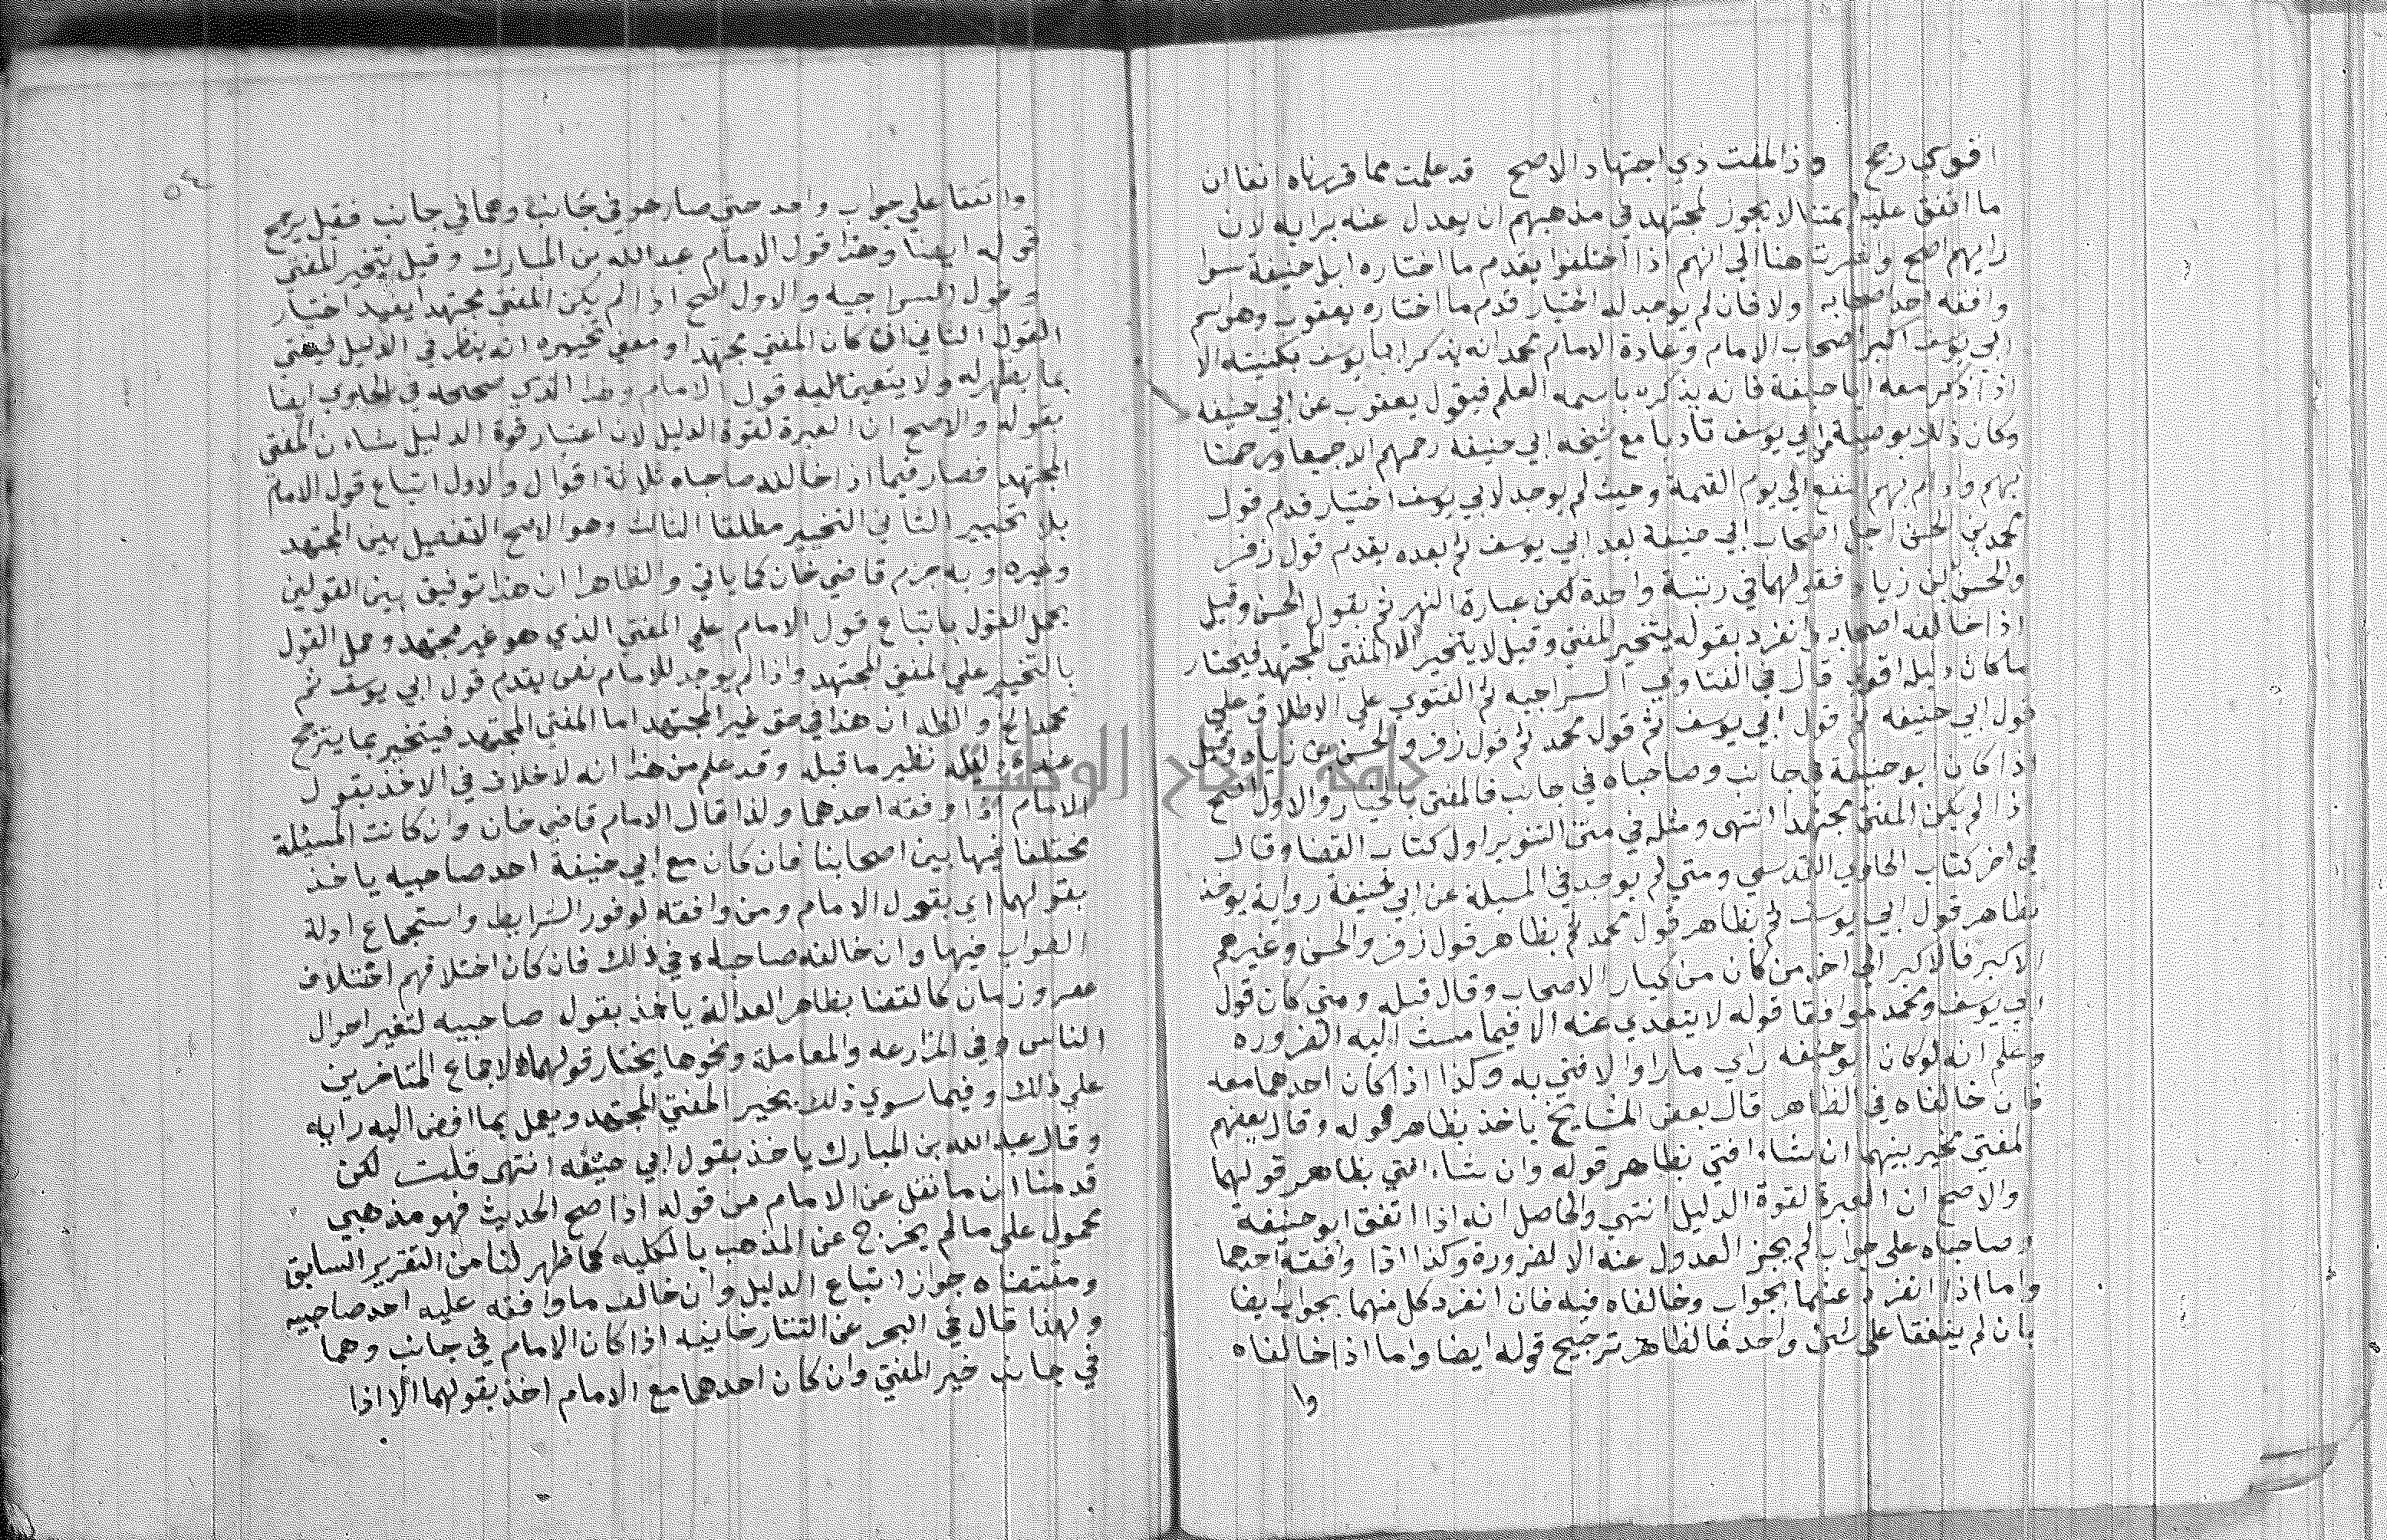 اقوي رجح وذا لمفت ذي اجتهاد الاصح قد علمت مما قررناه انفا ان
ما اتفق عليه ايمتنا لا يجوز لمجتهد في مذهبهم ان يعدل عنه برايه لان
رايهم اصح واشرت هنا الي انهم اذا اختلفوا يقدم ما اختاره ابو حنيفة سوا
وافقه احد اصحابه ولا فان لم يوجد له اختيار قدم ما اختاره يعقوب وهو اسم
ابي يوسف اكبر اصحاب الامام وعادة الامام محمد انه يذكر ابا يوسف بكنيته الا
اذا ذكر معه ابا حنيفة فانه يذكره باسمه العلم فيقول يعقوب عن ابي حنيفه
وكان ذلك بوصية من ابي يوسف تادبا مع شيخه ابي حنيفه رحمهم الله جميعا ورحمنا
بهم وادام بهم النفع الي يوم القيمة وحيث لم يوجد لابي يوسف اختيار قدم قول
محمد بن الحسن اجل اصحاب ابي حنيفة بعد ابي يوسف ثم بعده يقدم قول زفر
والحسن بن زياد فقولهما في رتبة واحدة لكن عبارة النهر ثم بقول الحسن وقيل
اذا خالفه اصحابه وانفرد بقوله يتخير المفتي وقيل لا يتخير الا المفتي المجتهد فيختار
ما كان دليله اقوي قال في الفتاوي السراجيه ثم الفتوي علي الاطلاق علي
قول ابي حنيفه ثم قول ابي يوسف ثم قول محمد ثم قول زفر والحسن بن زياد وقيل
اذا كان ابو حنيفة في جانب وصاحباه في جانب فالمفتي بالخيار والاول اصح
اذا لم يكن المفتي مجتهدا انتهى ومثله في متن التنوير اول كتاب القضا وقال
في اخر كتاب الحاوي القدسي ومتي لم يوجد في المسيلة عن ابي حنيفة رواية يوخذ
بظاهر قول ابي يوسف ثم بظاهر قول محمد ثم بظاهر قول زفر والحسن وغيرهم
الاكبر فالاكبر الي اخر من كان من كبار الاصحاب وقال قبله ومتي كان قول
ابي يوسف ومحمد موافقا قوله لا يتعدي عنه الا فيما مست اليه الضروره
وعلم انه لو كان ابو حنيفه راي ما راوا لافتي به وكذا اذا كان احدهما معه
فان خالفاه في الظاهر قال بعض المشايخ ياخذ بظاهر قوله وقال بعضهم
المفتي مخير بينهما ان شاء افتي بظاهر قوله وان شاء افتي بظاهر قولهما
والاصح ان العبرة لقوة الدليل انتهى والحاصل انه اذا اتفق ابو حنيفة
وصاحباه علي جواب لم يجز العدول عنه الا لضرورة وكذا اذا وافقه احدهما
واما اذا انفرد عنهما بجواب وخالفاه فيه فان انفرد كل منهما بجواب ايضا
بان لم يتفقا علي شئ واحد فالظاهر ترجيح قوله ايضا واما اذا خالفاه
وا
واتفقا علي جواب واحد حتي صار هو في جانب وهما في جانب فقيل يرجح
قوله ايضا وهذا قول الامام عبد الله بن المبارك وقيل يتخير المفتي
وقول السراجيه والاول اصح اذا لم يكن المفتي مجتهدا يفيد اختيار
القول الثاني ان كان المفتي مجتهدا ومعني تخييره انه ينظر في الدليل فيفتي
بما يظهر له ولا يتعين عليه قول الامام وهذا الذي صححه في الحاوي ايضا
بقوله والاصح ان العبرة لقوة الدليل لان اعتبار قوة الدليل شان المفتي
المجتهد فصار فيما اذا خالفه صاحباه ثلاثة اقوال والاول اتباع قول الامام
بلا تخيير الثاني التخيير مطلقا الثالث وهو الاصح التفصيل بين المجتهد
وغيره وبه جزم قاضي خان كما ياتي والظاهر ان هذا توفيق بين القولين
بحمل القول باتباع قول الامام علي المفتي الذي هو غير مجتهد وحمل القول
بالتخيير علي المفتي المجتهد واذا لم يوجد للامام نص يقدم قول ابي يوسف ثم
محمد الخ والظاهر ان هذا في حق غير المجتهد اما المفتي المجتهد فيتخير بما يترجح
عنده دليله نظير ما قبله وقد علم من هذا انه لا خلاف في الاخذ بقول
الامام اذا وفقه احدهما ولذا قال الامام قاضي خان وان كانت المسئلة
مختلفا فيها بين اصحابنا فان كان مع ابي حنيفة احد صاحبيه ياخذ
بقولهما اي بقول الامام ومن وافقه لوفور الشرايط واستجماع ادلة
الصواب فيها وان خالفه صاحباه في ذلك فان كان اختلافهم اختلاف
عصر وزمان كالقضا بظاهر العدالة ياخذ بقول صاحبيه لتغير احوال
الناس وفي المزارعه والمعاملة ونحوها يختار قولهما لاجماع المتاخرين
علي ذلك وفيما سوي ذلك يخير المفتي المجتهد ويعمل بما افضى اليه رايه
وقال عبد الله بن المبارك ياخذ بقول ابي حنيفه انتهى قلت لكن
قدمنا ان ما نقل عن الامام من قوله اذا صح الحديث فهو مذهبي
محمول على ما لم يخرج عن المذهب بالكليه كما ظهر لنا من التقرير السابق
ومقتضاه جواز اتباع الدليل وان خالف ما وافقه عليه احد صاحبيه
ولهذا قال في البحر عن التتارخانيه اذا كان الامام في جانب وهما
في جانب خير المفتي وان كان احدهما مع الامام اخذ بقولهما الا اذا
جامعة النجاح الوطنية